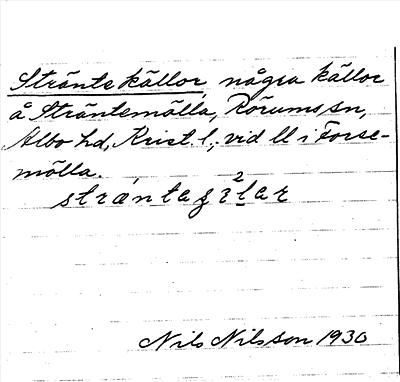 Stränte källor, några källor
å Sträntemölla, Rörums sn,
Albo hd, Krist. l., vid ll i Forse-
mölla.
Nils Nilsson 1930